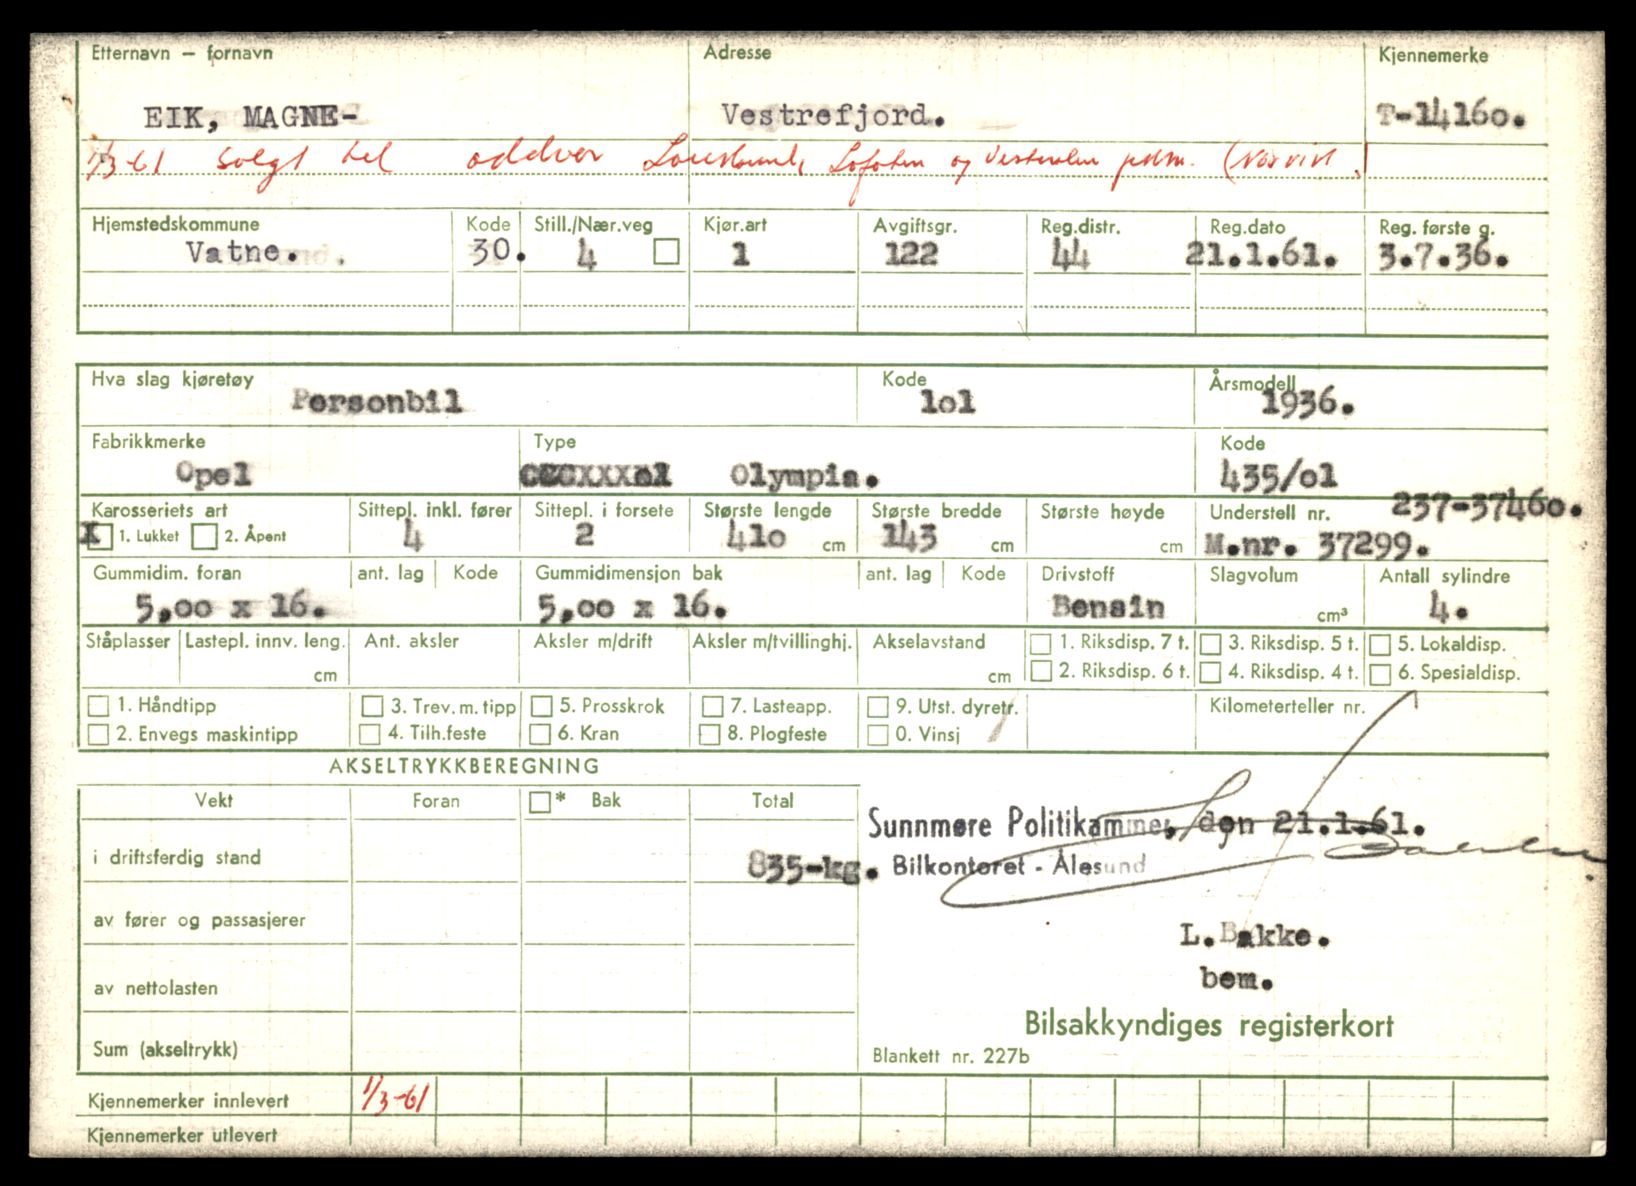 Etternavn — fornavn Adresse Kjennemerke
EIK, MAGNE- Vestrefjord. T-14160.
1/3-61 Solgt til oddvar Lofoten og Vesterålen pdm. (Narvik)
Hjemstedskommune Kode Still./Nær.veg Kjør.art Avgiftsgr. Reg.distr. Reg.dato Reg. første g.
Vatne. 30. 4 1 122 44 21.1.61. 3.7.36.
Hva slag kjøretøy Kode Årsmodell
Personbil lol 1936.
Fabrikkmerke Type Kode
Opel Olympia. 435/ol
Karosseriets art Sittepl. inkl. fører Sittepl. i forsete Største lengde Største bredde Største høyde Understell nr. 237-37460.
X 1. Lukket 2. Åpent 4 2 410 cm 143 cm cm M.nr. 37299.
Gummidim. foran ant. lag Kode Gummidimensjon bak ant. lag Kode Drivstoff Slagvolum Antall sylindre
5,00 x 16. 5,00 x 16. Bensin cm³ 4.
Ståplasser Lastepl. innv. leng. Ant. aksler Aksler m/drift Aksler m/tvillinghj. Akselavstand 1. Riksdisp. 7 t. 3. Riksdisp. 5 t. 5. Lokaldisp.
cm cm 2. Riksdisp. 6 t. 4. Riksdisp. 4 t. 6. Spesialdisp.
1. Håndtipp 3. Trev. m. tipp 5. Prosskrok 7. Lasteapp. 9. Utst. dyretr. Kilometerteller nr.
2. Envegs maskintipp 4. Tilh.feste 6. Kran 8. Plogfeste 0. Vinsj
AKSELTRYKKBEREGNING
Vekt Foran * Bak Total
Sunnmøre Politikammer, den 21.1.61.
i driftsferdig stand 835-kg. Bilkontoret - Ålesund
av fører og passasjerer
L.Bakke.
bem.
av nettolasten
Bilsakkyndiges registerkort
Sum (akseltrykk) Blankett nr. 227b
Kjennemerker innlevert 1/3-61
Kjennemerker utlevert